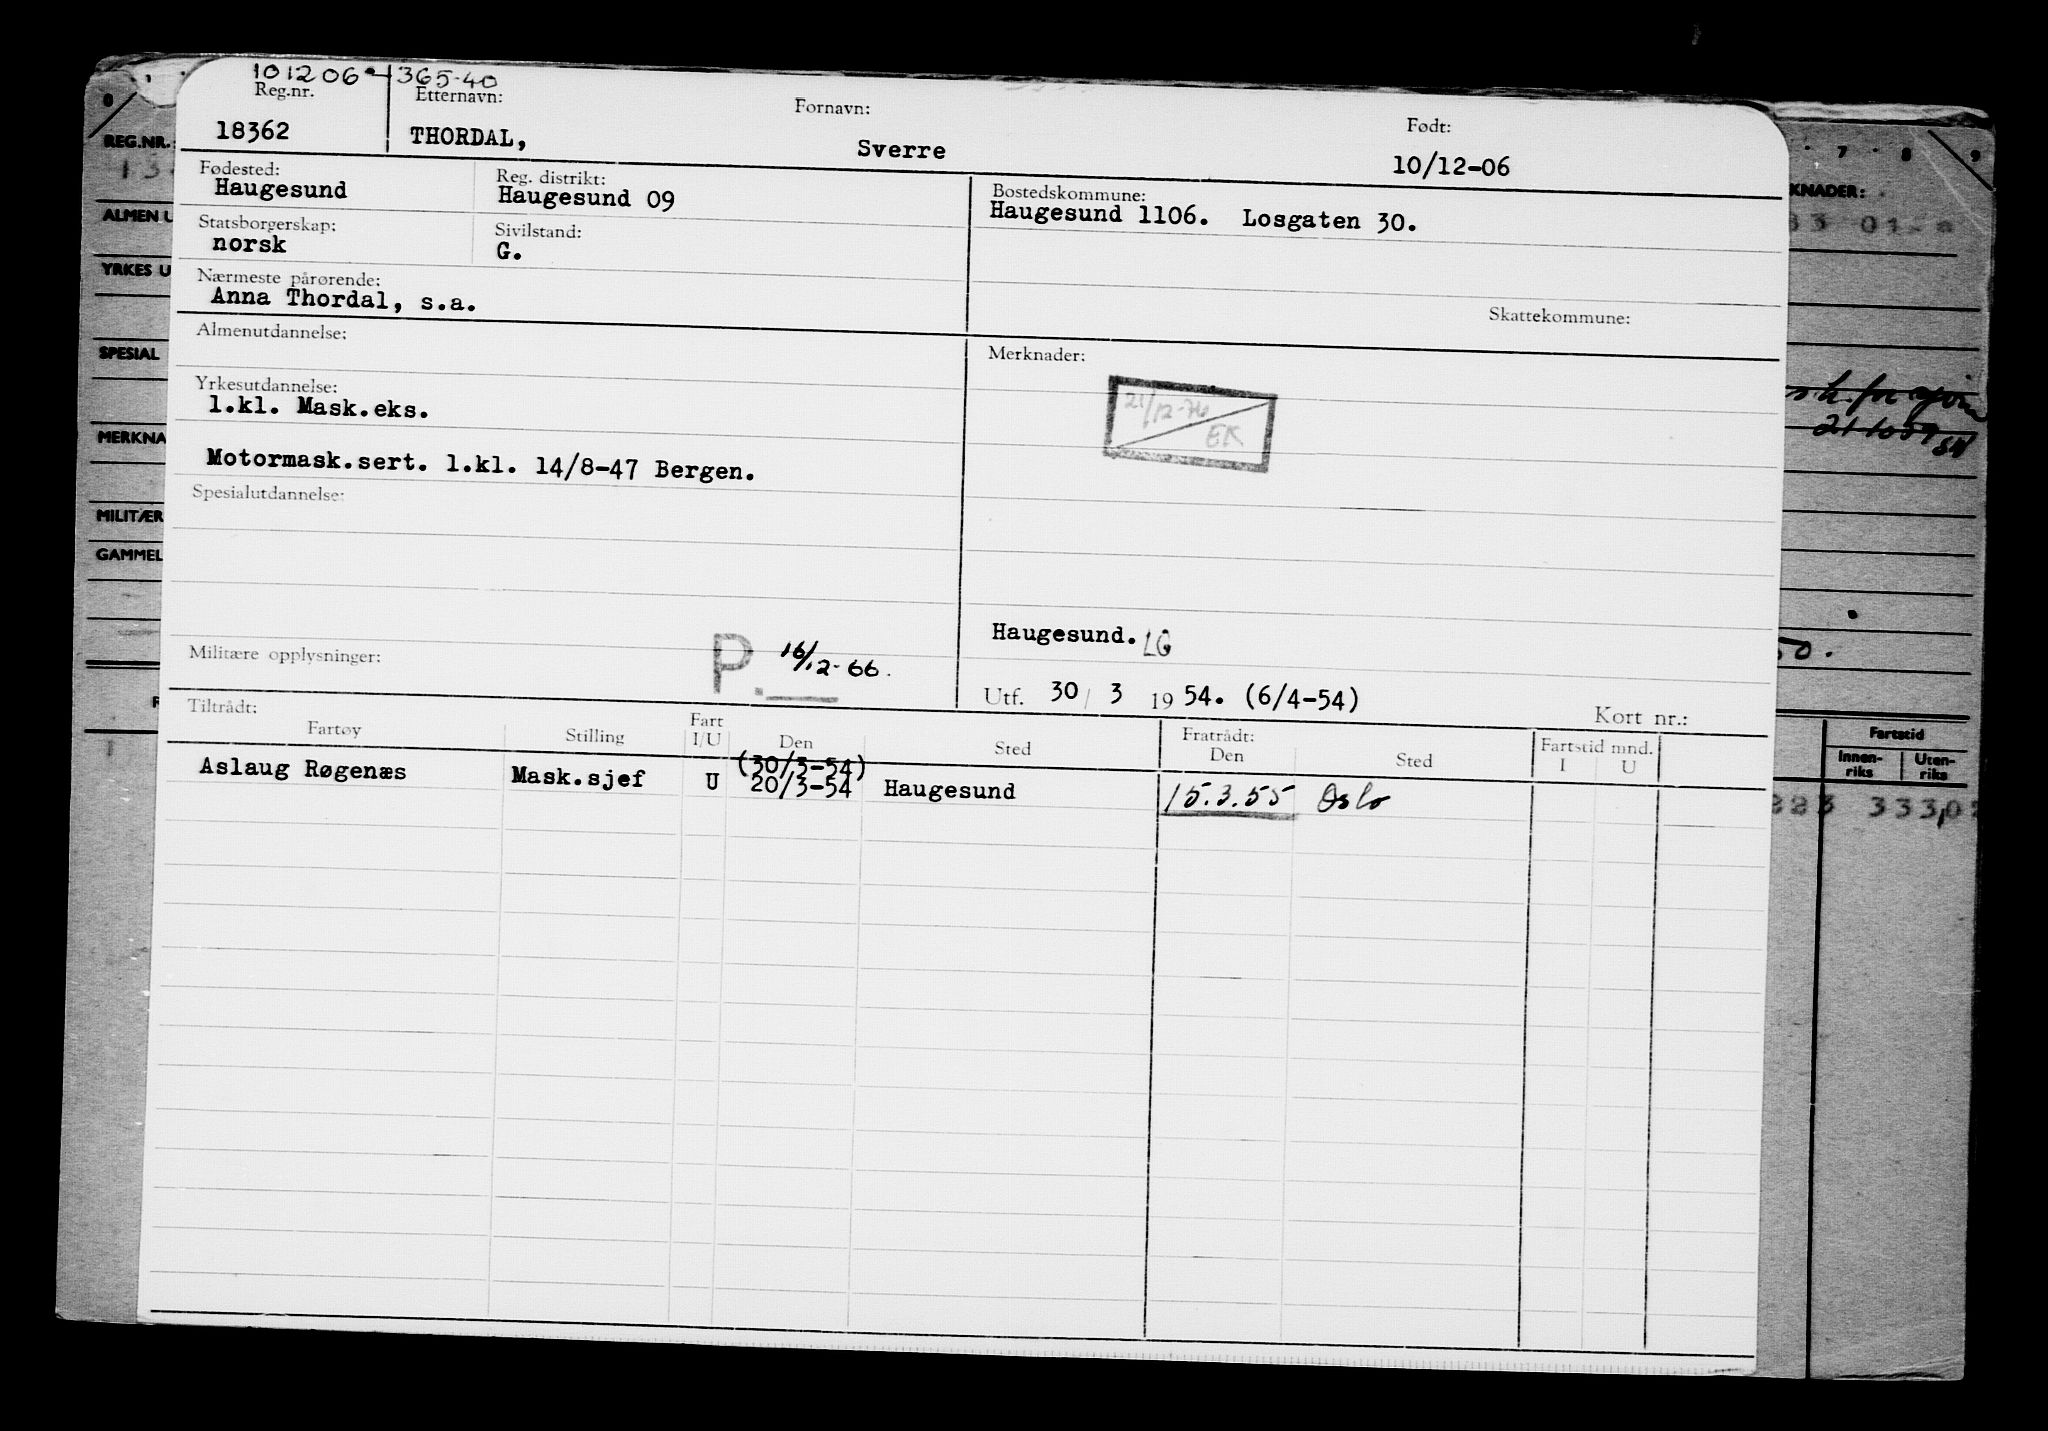 101206 365-40
Reg.nr. Etternavn: Fornavn: Født:
18362 THORDAL, Sverre 10/12-06
Fødested: Reg. distrikt: Bostedskommune:
Haugesund Haugesund 09 Haugesund 1106. Losgaten 30.
Statsborgerskap: Sivilstand:
norsk G.
Nærmeste pårørende:
Anna Thordal, s.a.
Skattekommune:
Almenutdannelse: Merknader:
Yrkesutdannelse:
1.kl. Mask.eks.
21/12-76
EK
Motormask.sert. 1.kl. 14/8-47 Bergen.
Spesialutdannelse:
Haugesund. LG
Militære opplysninger: P. 16/12-66.
Utf. 30/3 1954. (6/4-54)
Kort nr.:
Tiltrådt: Fratrådt: Fartstid mnd.
Fartøy Stilling Fart I/U Den Sted Den Sted I U
(30/3-54)
Aslaug Røgenæs Mask.sjef U 20/3-54 Haugesund 15.3.55 Oslo
REG.NR.:
ALMEN U
YRKES U
SPESIAL
MERKNA
MILITÆR
GAMMEL
7 8 9
KNADER:
50.
Fartstid
Innen-riks Uten-riks